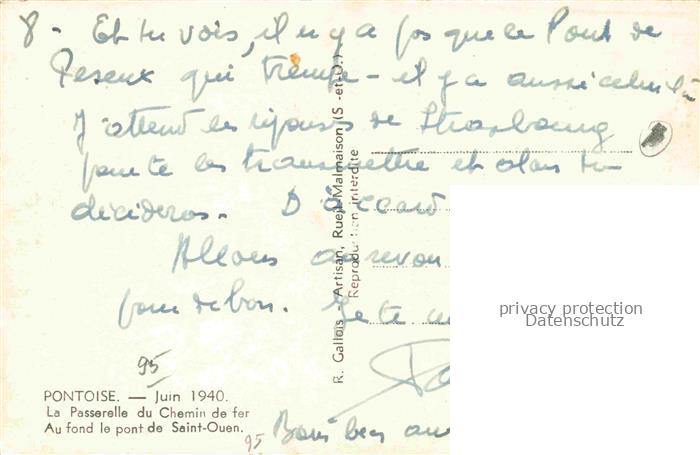 8 - Et tu vois, il n y a pas que le Pont de
qui trempe - il y a aussi celui là
J'attend les réponses de Strasbourg
pour te les transmettre et alors tu
décideras. D'accord
Allons au revoir
pour de bon. Je te
95
PONTOISE. — Juin 1940.
La Passerelle du Chemin de fer
Au fond le pont de Saint-Ouen.
95
R. Gallois - Artisan, Rueil-Malmaison (S.-et-O.)
Reproduction interdite
privacy protection
Datenschutz